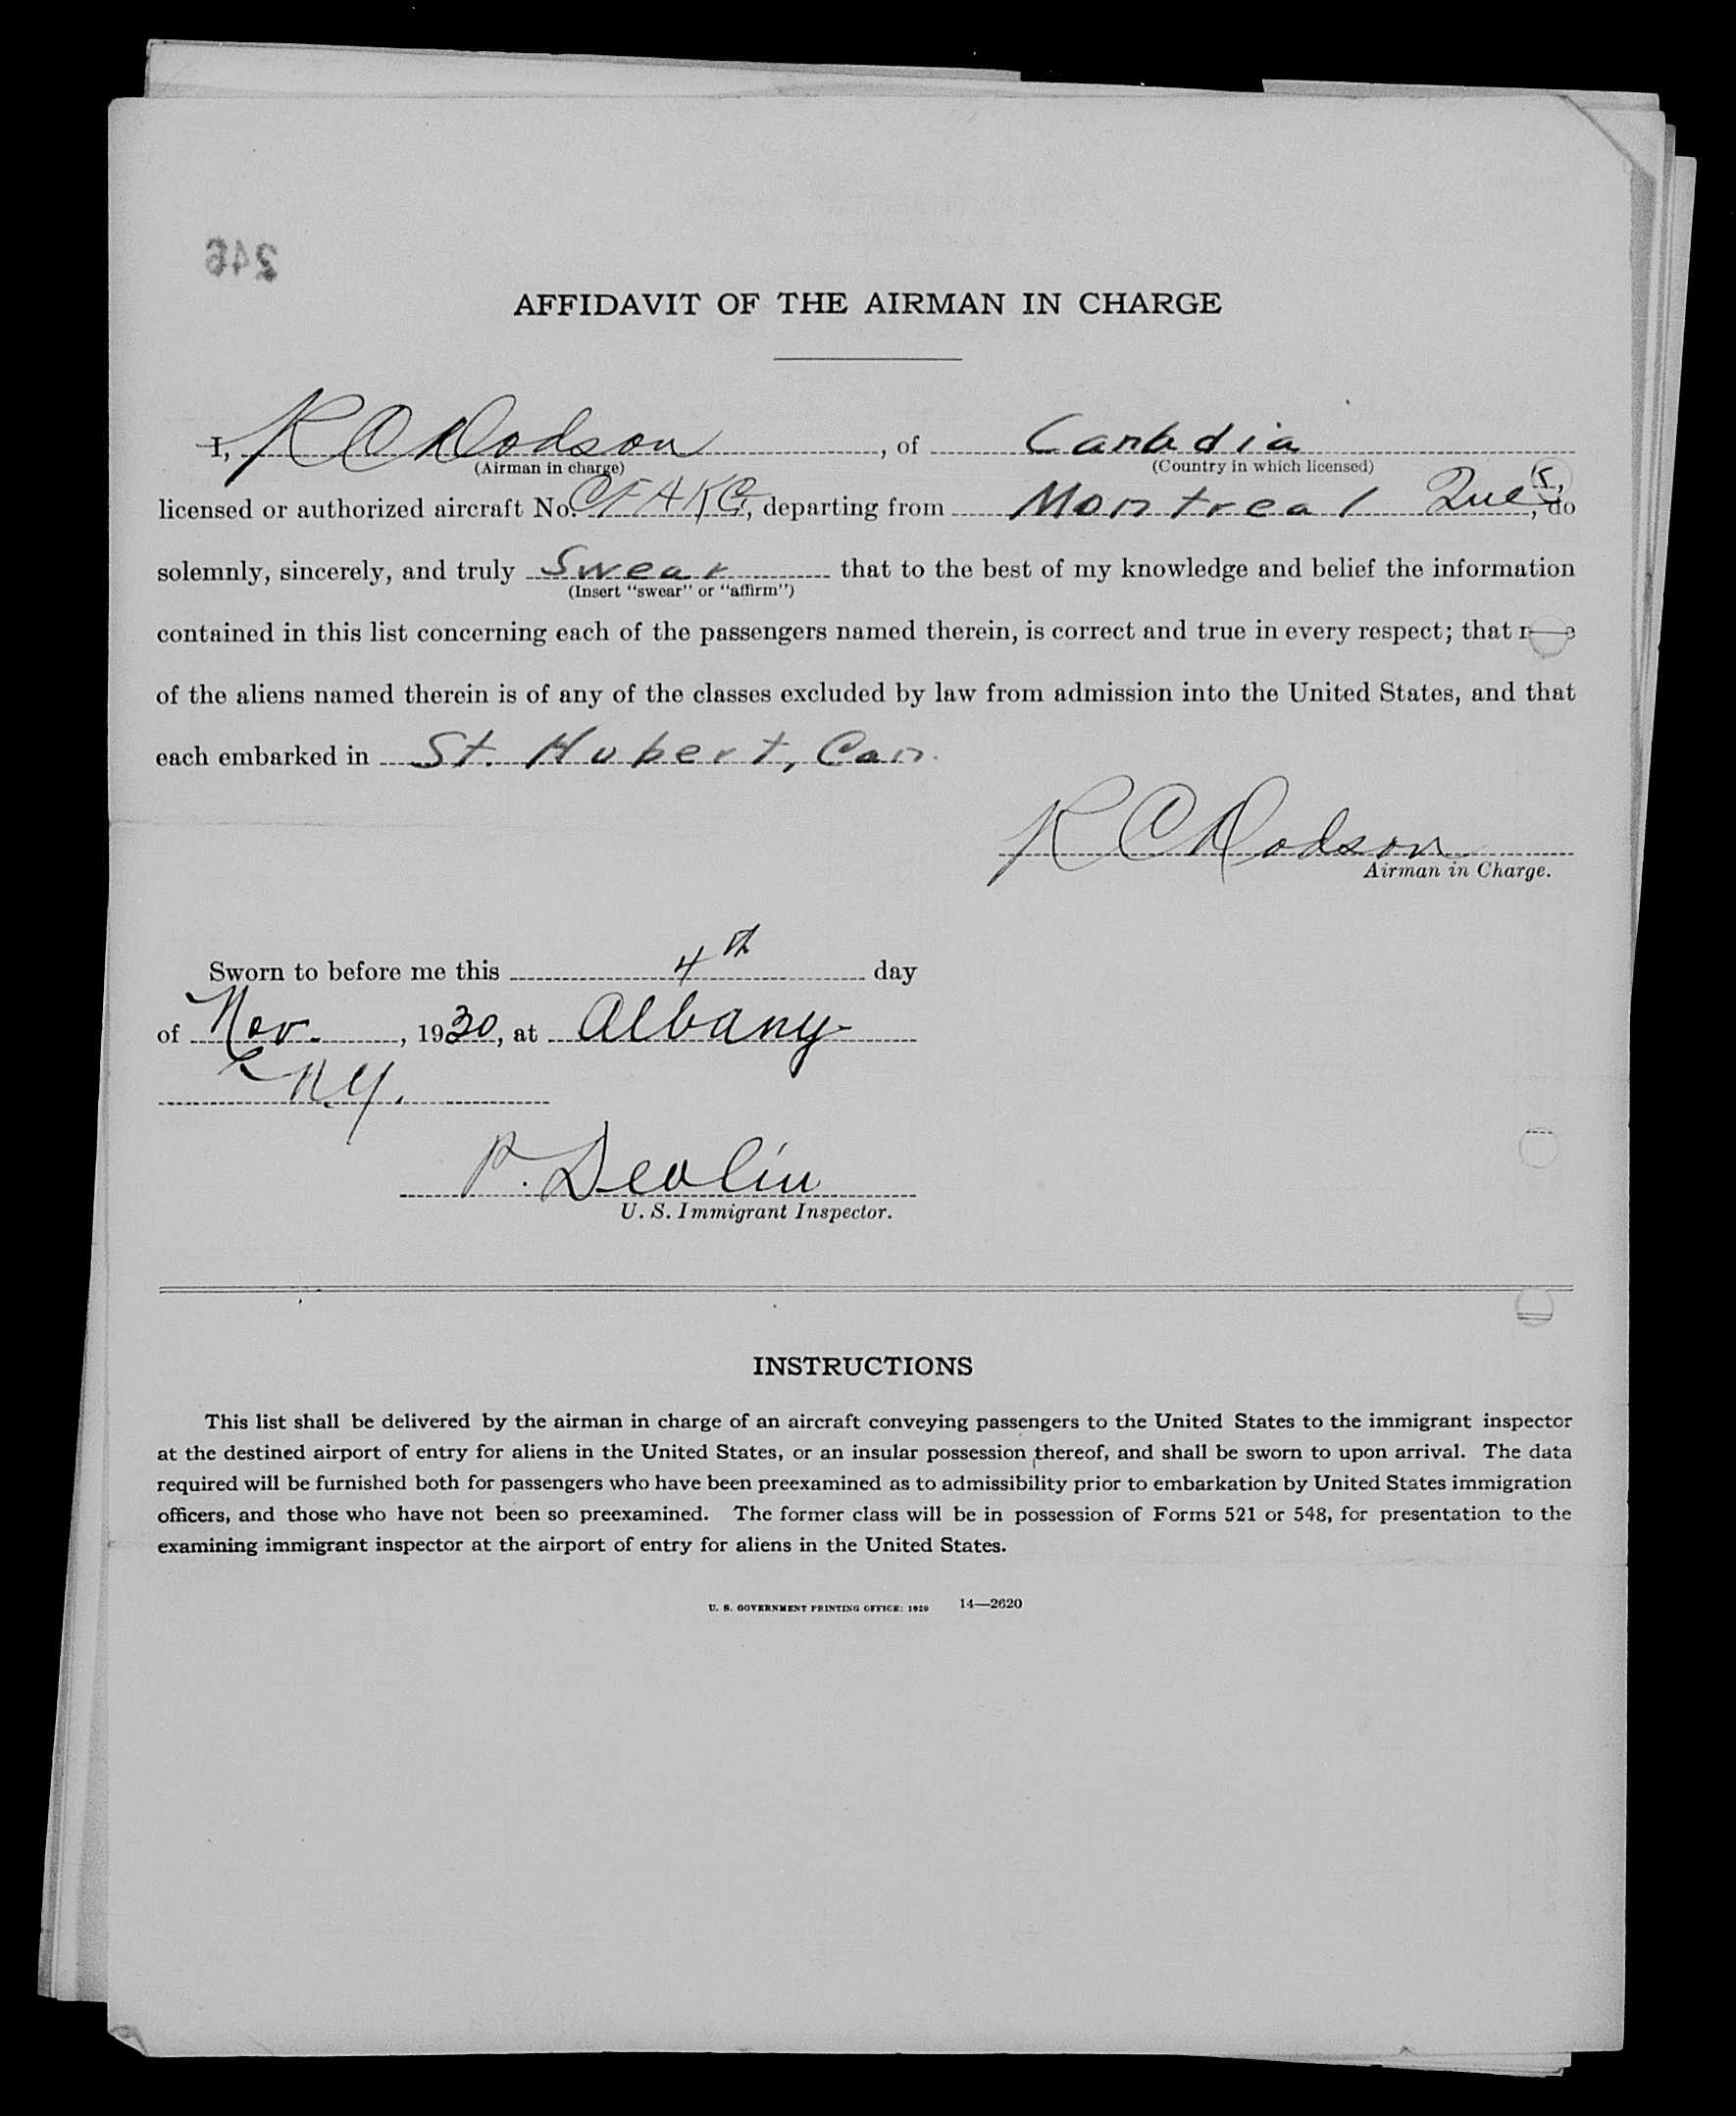 246
AFFIDAVIT OF THE AIRMAN IN CHARGE
I, R C Dodson, of Canbdia
(Airman in charge) (Country in which licensed)
licensed or authorized aircraft No. CFAKG, departing from Montreal Que, do
solemnly, sincerely, and truly Swear that to the best of my knowledge and belief the information
(Insert "swear" or "affirm")
contained in this list concerning each of the passengers named therein, is correct and true in every respect; that
of the aliens named therein is of any of the classes excluded by law from admission into the United States, and that
each embarked in St. Hubert, Can.
R C Dodson
Airman in Charge.
Sworn to before me this 4th day
of Nov., 1930, at Albany
N.Y.
P. Devlin
U. S. Immigrant Inspector.
INSTRUCTIONS
This list shall be delivered by the airman in charge of an aircraft conveying passengers to the United States to the immigrant inspector
at the destined airport of entry for aliens in the United States, or an insular possession thereof, and shall be sworn to upon arrival. The data
required will be furnished both for passengers who have been preexamined as to admissibility prior to embarkation by United States immigration
officers, and those who have not been so preexamined. The former class will be in possession of Forms 521 or 548, for presentation to the
examining immigrant inspector at the airport of entry for aliens in the United States.
U. S. GOVERNMENT PRINTING OFFICE: 1929 14—2620